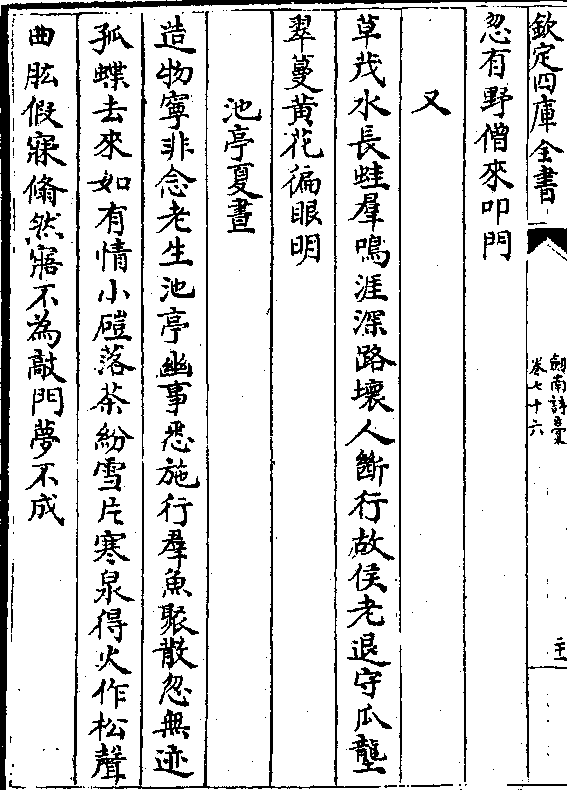 欽定四庫全書
劍南詩藁
卷七十六
忽有野僧來叩門
又
草茂水長蛙羣鳴涯深路壞人斷行故侯老退守瓜壟
翠蔓黃花徧眼明
池亭夏晝
造物寧非念老生池亭幽事悉施行羣魚聚散忽無迹
孤蝶去來如有情小磑落茶紛雪片寒泉得火作松聲
曲肱假寐翛然寤不為敲門夢不成